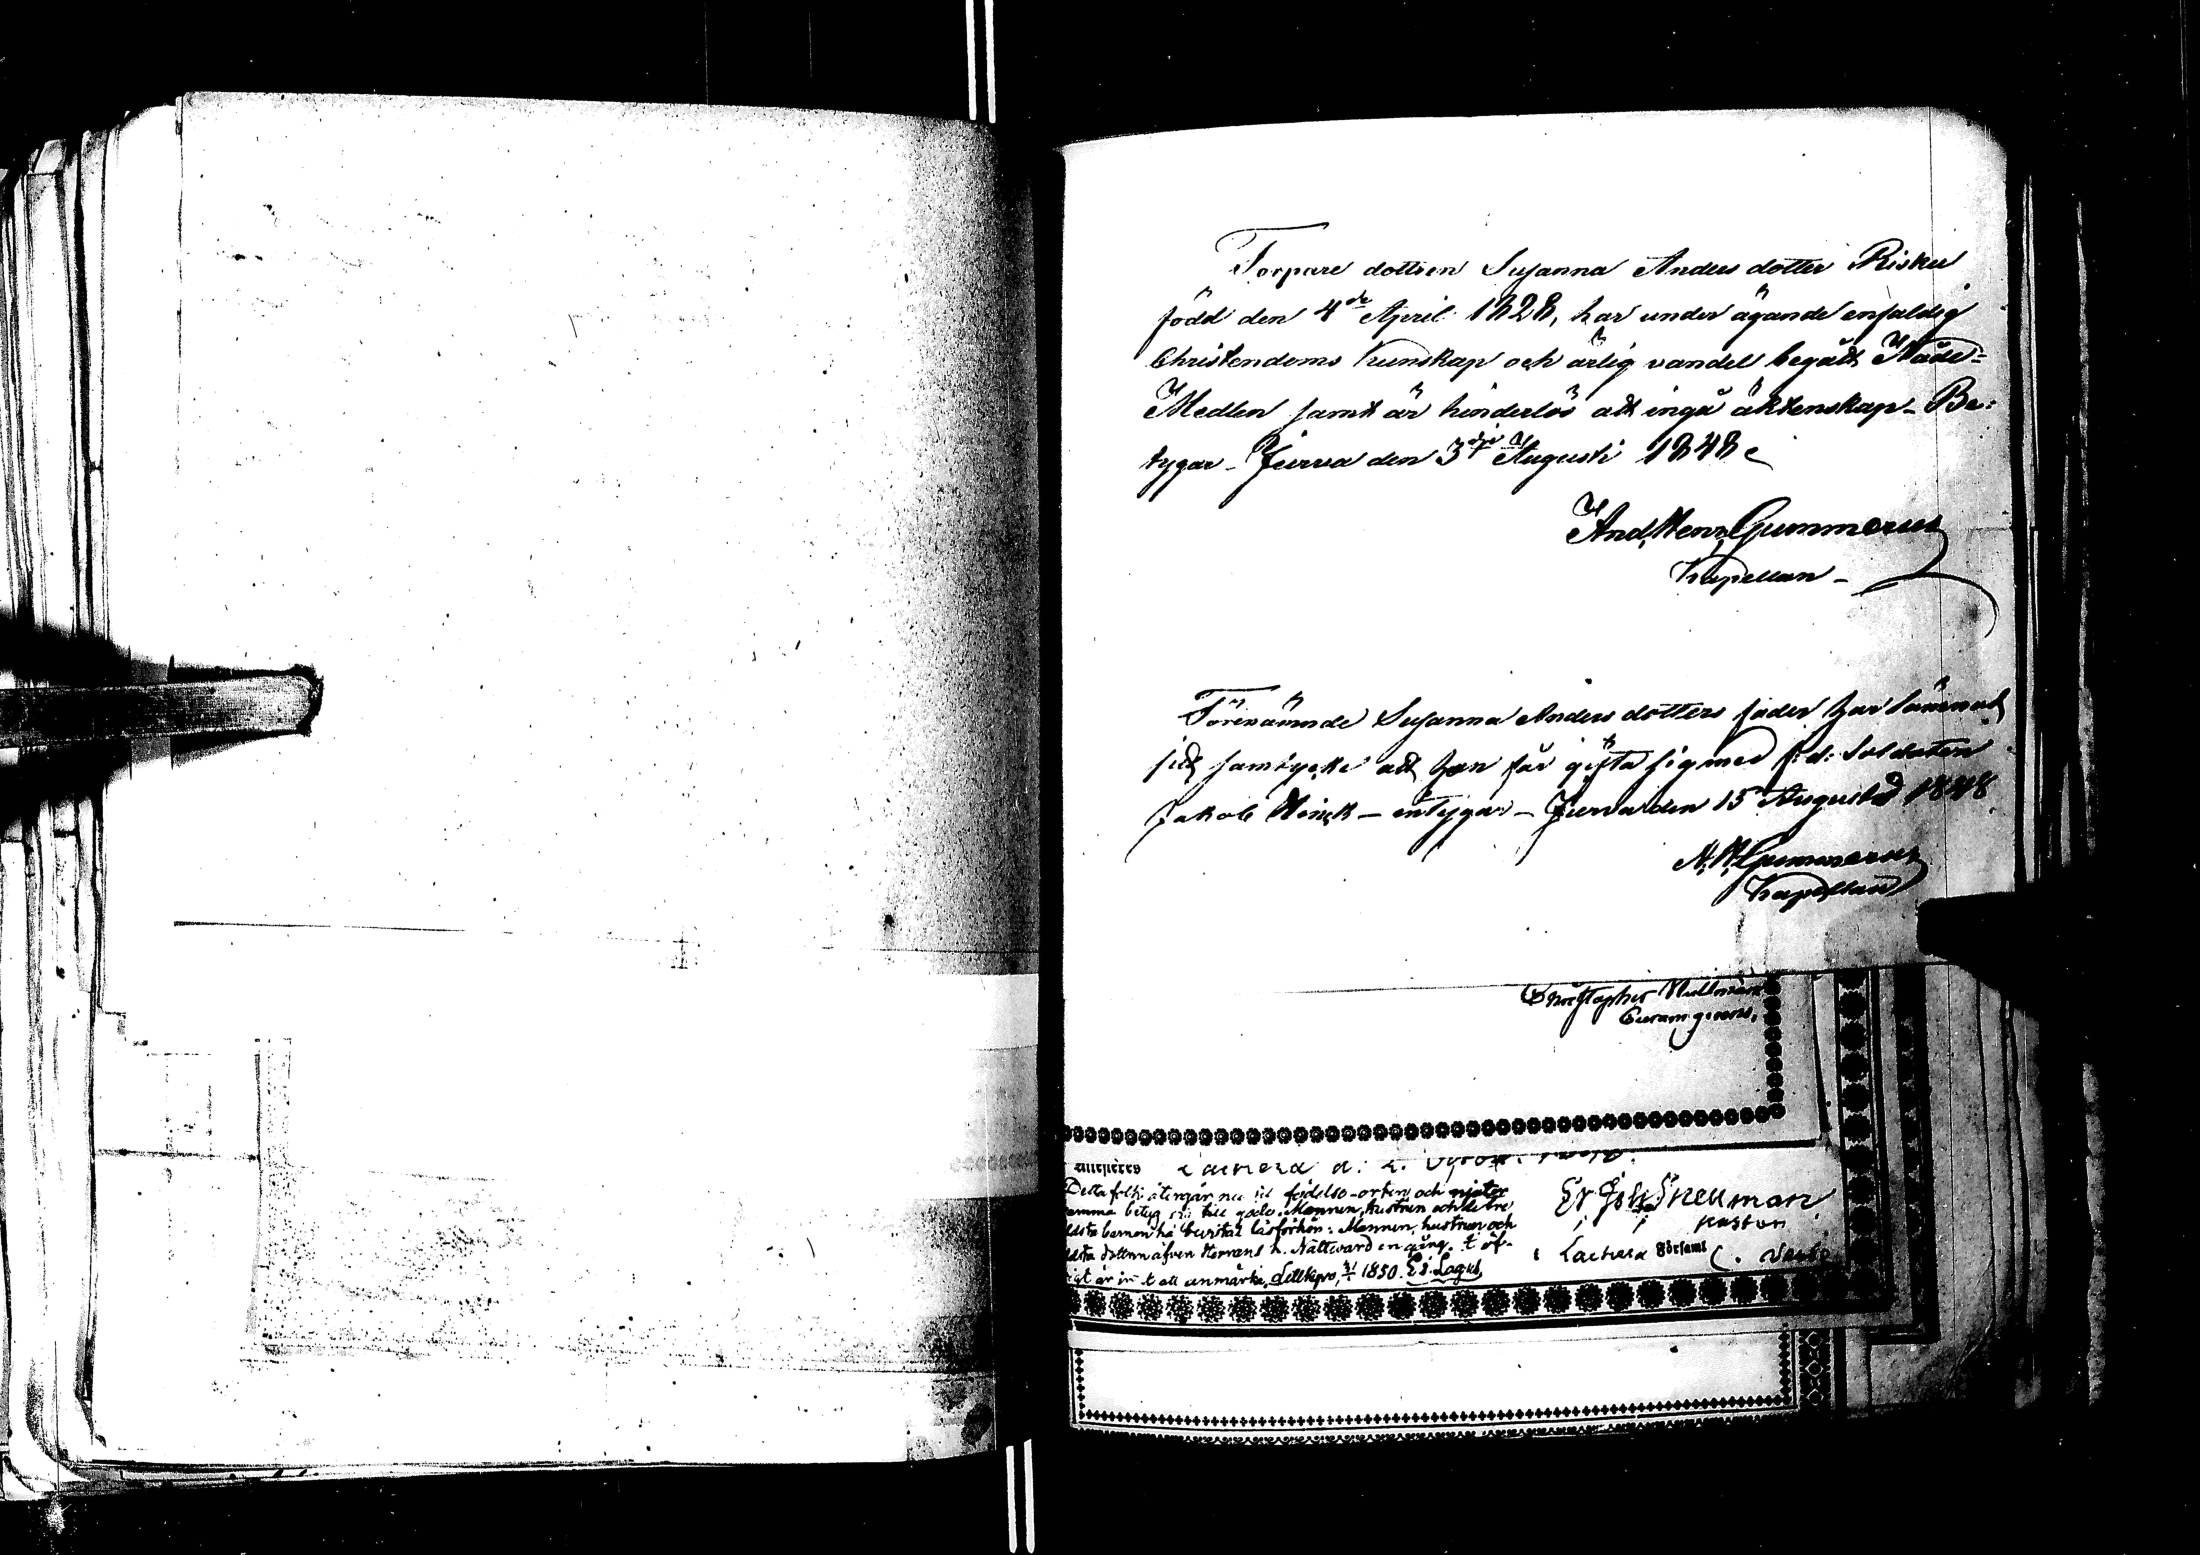 Torpare dottren Susanna Anders dotter Riskù
född den 4de April 1828, har under ägande enfaldig
Christendoms kunskap och ärlig vandel begått Nåde-
Medlen samt är hinderlös att ingå äktenskap - Be:
tygar - Jurva den 3dje Augusti 1848
And, Henr, Gummerus
Kapellan -
Förenämnde Susanna Anders dotters fader har lämnat
sitt samtycke att hon får gifta sig med f: d: Soldaten
Jakob - intygar - Jurva den 15 Augusti 1848
A, H, Gummerus
Kapellan
Christopher
Curam gerens.
Detta folk återgår nu til födelse-orten och njuter
samma betyg till godo. Mannen, hustrun och de tre
äldsta barnen ha bevistat läsförhör: Mannen, hustrun och
äldsta dottren äfven Herrans h. Nattward en gång. I öf-
rigt är int att anmärka, 1850. Lagus
Snellman
Pastor
i Församl